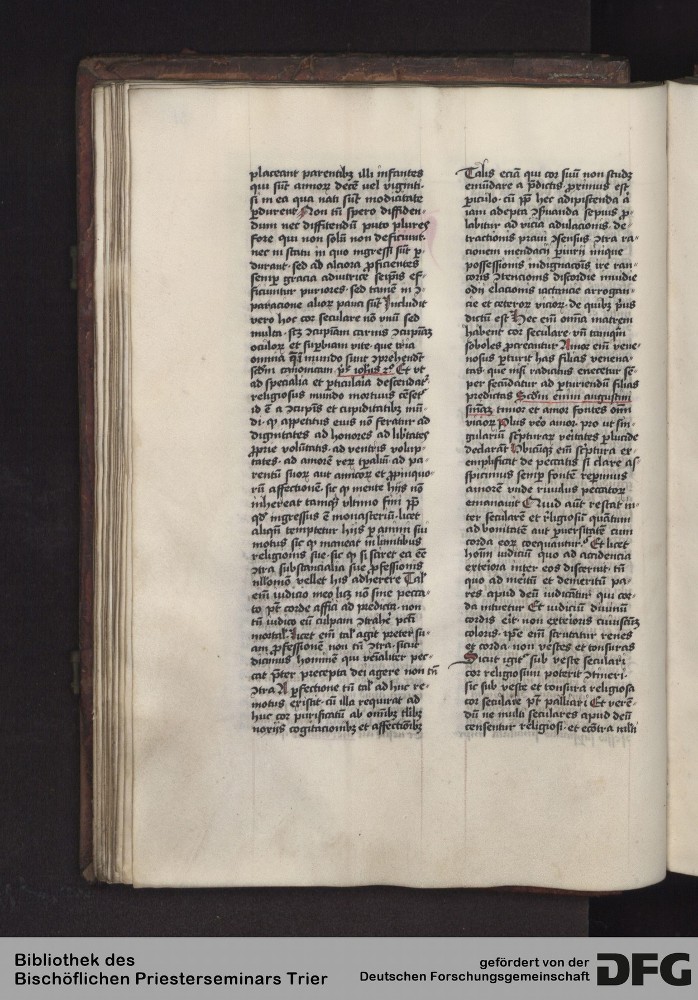 placeant parentibꝫ illi infantes
qui sūt annorꝫ decē uel viginti·
si in ea qua nati sūt modicitate
ꝑdurent· Non tn̄ spero diffiden-
dum nec diffitendū puto plures
fore qui non solū non deficiunt·
nec in statu in quo ingressi sūt ꝑ-
durant· sed ad alciora ꝓficientes
semꝑ gracia adiutrice seip̄os ef-
ficiuntur puriores· sed tamē in ꝯ-
paracione aliorꝫ pauci sūt Includit
vero hoc cor seculare nō vnū sed
multa· scꝫ ꝯcupiam carnis ꝯcupiaꝫ
oculorꝫ et suꝑbiam vite· que tria
omnia mundo sunt ꝯprehendit
scd̄m canonicam Et vt
ad specialia et ꝑticularia descendat̉
religiosus mundo mortuus cēset̉
id ē a ꝯcupīs et cupiditatibꝫ mū-
di· ꝙ appetitus eius nō feratur ad
dignitates ad honores ad libtates
ꝓprie volūtatis· ad ventris volup-
tates· ad amorē rerꝫ tꝑaliū· ad pa-
rentū suorꝫ aut amicorꝫ et ꝓpinquo-
rū affectionē· sic ꝙ mente hijs nō
inhereat tamqꝫ vltimo fini ꝓꝑ
qd̄ ingressus ē monasteriū· licet
aliqn̄ temptetur hijs ꝑ animi sui
motus sic ꝙ maneat in limitibus
religionis sue· sic ꝙ si sciret ea eē
ꝯtra substancialia sue ꝓfessionis
nll̄omō vellet his adherere Tal̉
em̄ iudicio meo licꝫ nō sine pecca-
to pt̄ corde affici ad predicta· non
tn̄ iudico eū culpam ꝯtrahē pcti
mortal̉· Licet em̄ tal̉ agit preter su-
am ꝓfessionē non tn̄ ꝯtra· sicut
dicimus hominē qui veialiter pec-
cat ꝑter precepta dei agere non tn̄
ꝯtra A ꝑfectione tn̄ tal̉ adhuc re-
motus existit· cū illa requirat ad
huc cor purificatū ab omībꝫ tlibꝫ
noxijs cogitacionibꝫ et affectiōibꝫ
Talis eciā qui cor suū non studꝫ
emūdare a p̄dictis ꝓximus est
ꝑiculo· cū ꝓꝑ hec adipiscenda ⁊
iam adepta ꝯseruanda sepius ꝓ-
labitur ad vicia adulacionis· de-
tractionis praui ꝯsensus ꝯtra ra-
cionem mendacij ꝑiurij inique
possessionis indignacōis ire ran-
coris ꝯtencionis discordie inuidie
odij elacionis iactancie arrogan-
cie et ceterorꝫ viciorꝫ· de quibꝫ p̄us
dictū est Hec em̄ omīa matrem
habent cor seculare· vn̄ tamqꝫ
soboles ꝓcreantur Amor em̄ vene-
nosus ꝑturit has filias venena-
tas· que nisi radicitus enecetur sē-
per secūdatur ad ꝑturiendū filias
predictas Scd̄m enim augustinū
timor et amor fontes om̄i
viciorꝫ Plus vō amor· pro ut sin-
gulariū sc̄pturarꝫ vēitates ꝑlucide
declarāt Ubicūqꝫ em̄ sc̄ptura ex-
emplificat de peccatis si clare as-
picimus semꝑ fontē reperimus
amorē vnde riuulus peccatorꝫ
emanauit Quid aut̄ restat in-
ter seculare et r̄ligiosū quātum
ad bonitatē aut ꝑuersitatē cum
corda eorꝫ coequantur? Et licet
hoīm iudiciū quo ad accidencia
exteriora inter eos discernit· tn̄
quo ad meitū et demeritū pa-
res apud deū iudicātur qui cor-
da intuetur Et iudiciū diuinū
cordis est· non exterioris cuiuscūqꝫ
coloris· ip̄e em̄ scrutatur renes
et corda· non vestes et tonsuras
Sicut igit̉ sub veste seculari
cor religiosum poterit ꝯtineri·
sic sub veste et tonsura religiosa
cor seculare pt̄ palliari Et vere
dū ne multi seculares apud deū
censentur religiosi· et ecōtra nulli
Bibliothek des
Bischöflichen Priesterseminars Trier
gefördert von der
Deutschen Forschungsgemeinschaft
DFG